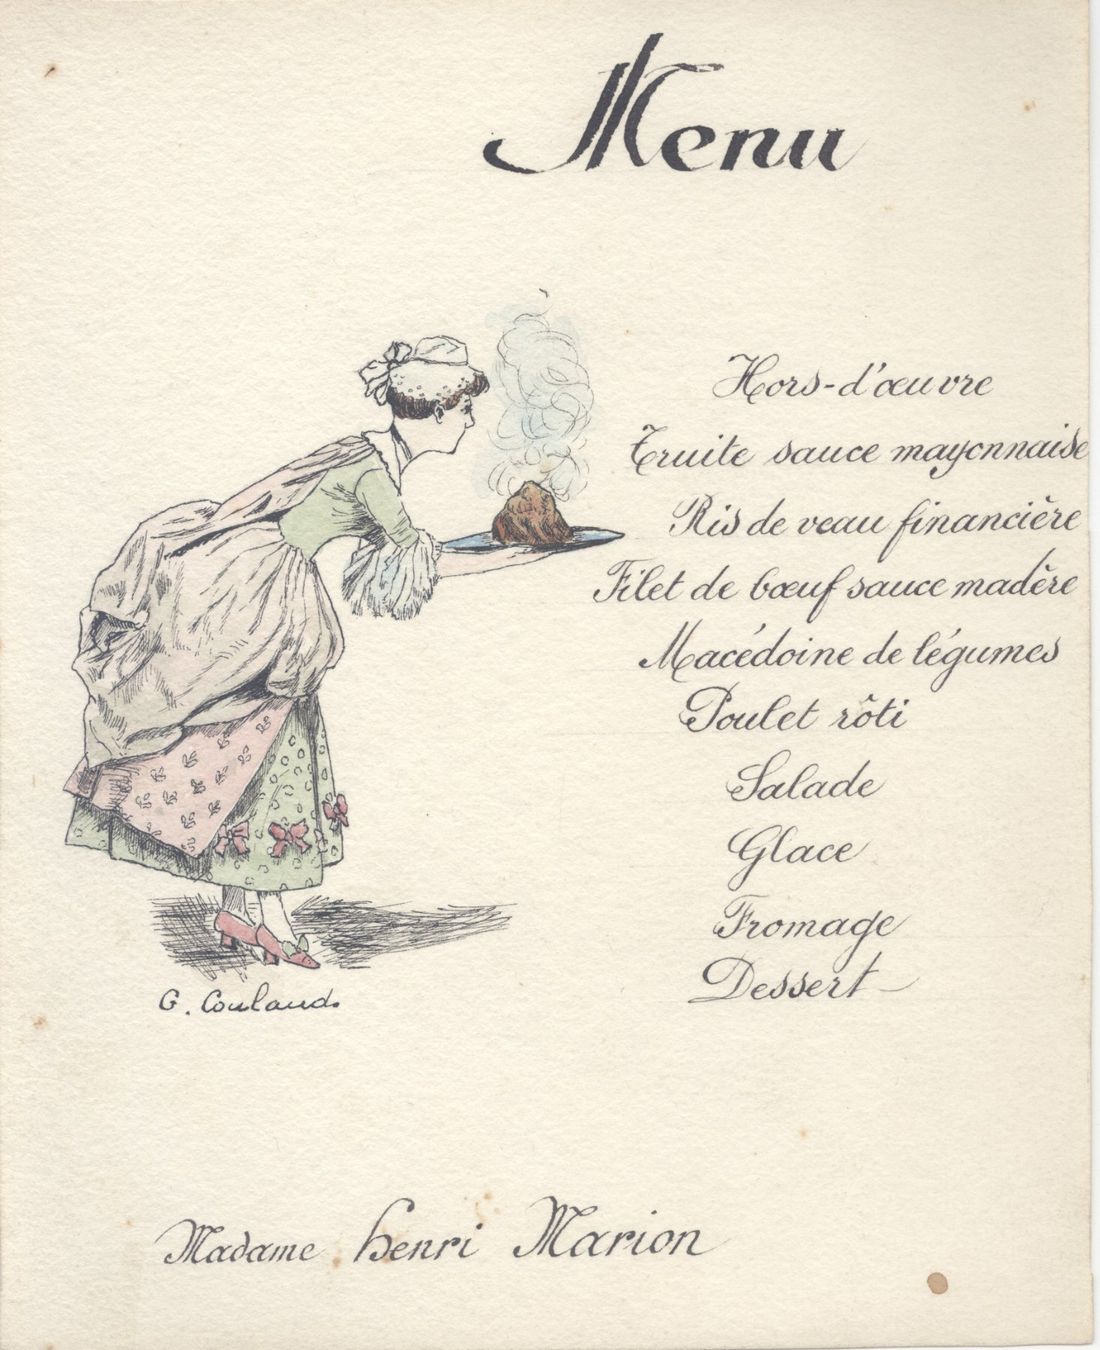 Menu
Hors-d'œuvre
Truite sauce mayonnaise
Ris de veau financière
Filet de bœuf sauce madère
Macédoine de légumes
Poulet rôti
Salade
Glace
Fromage
Dessert
G. Coulaud.
Madame Henri Marion